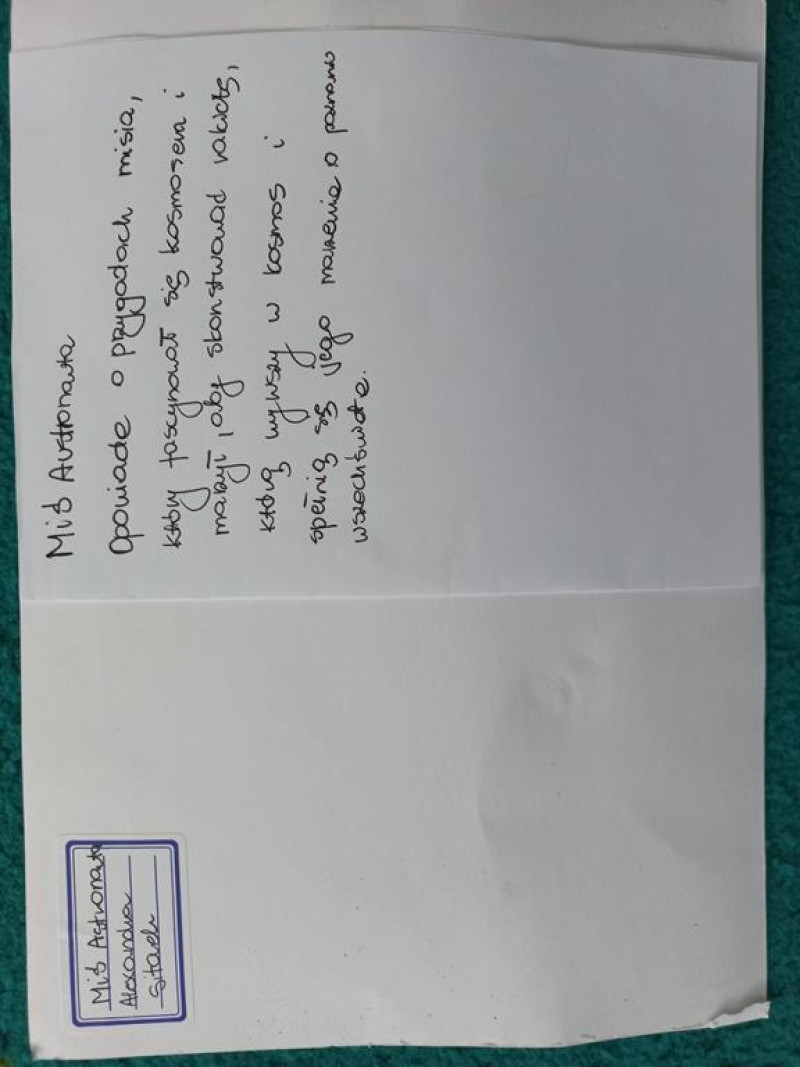 Miś Astronauta
Alexandra
Sitach
Miś Austronauta
Opowiada o przygodach misia,
który fascynował się kosmosem i
marzył, aby skonstruować rakietę,
którą wyruszy w kosmos i
spełnią się jego marzenia o poznaniu
wszechświata.